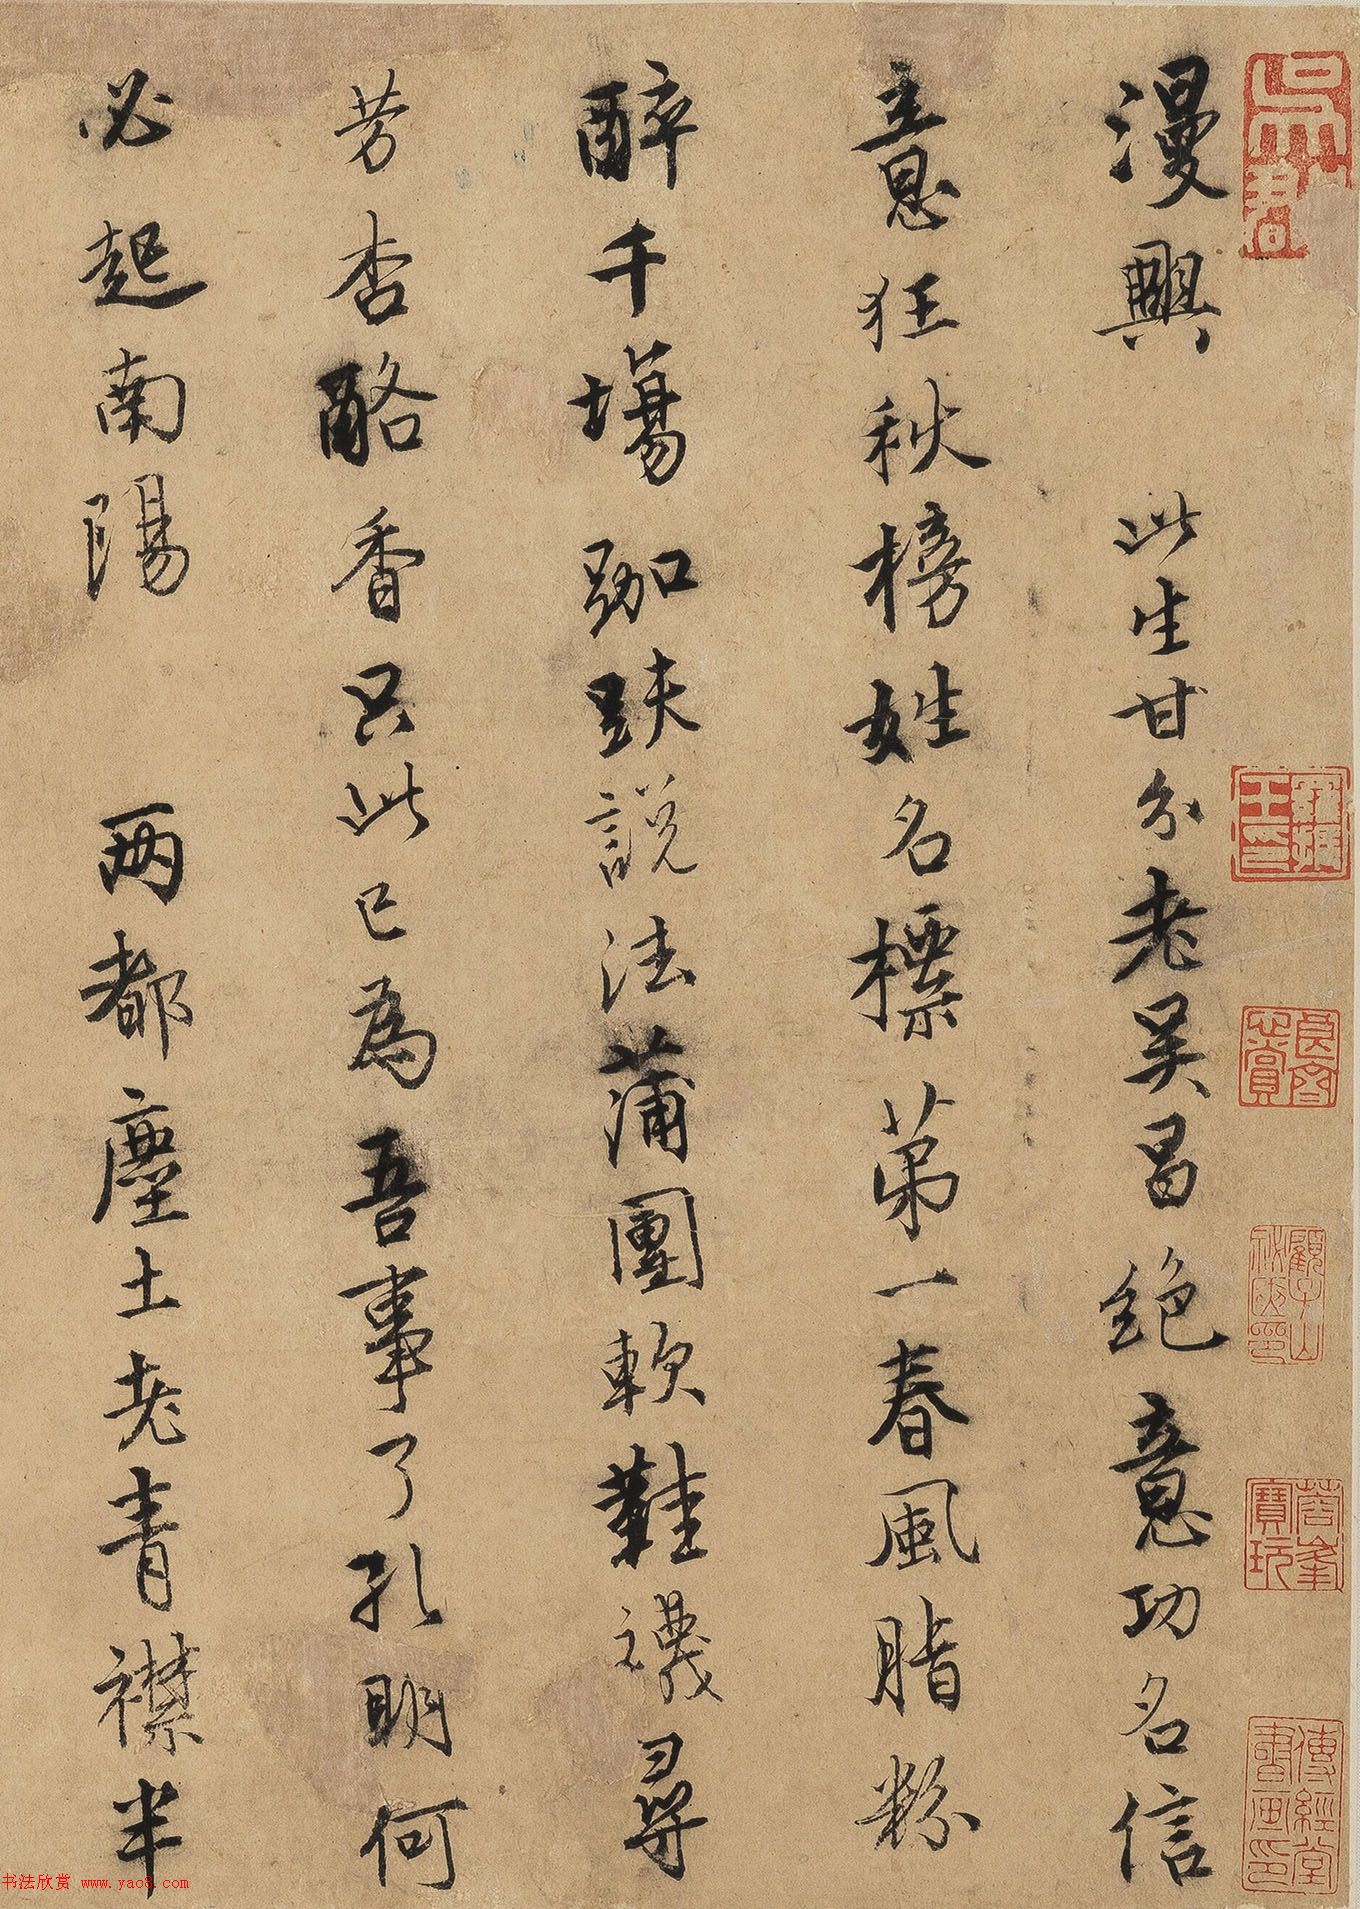 漫興 此生甘分老吳昌絕意功名信
意狂秋榜姓名標第一春風脂粉
醉千場跏趺說法蒲團軟鞋襪尋
芳杏酪香只此已為吾事了孔明何
必起南陽 兩都塵土老青襟半
書法欣賞 www.yac8.com